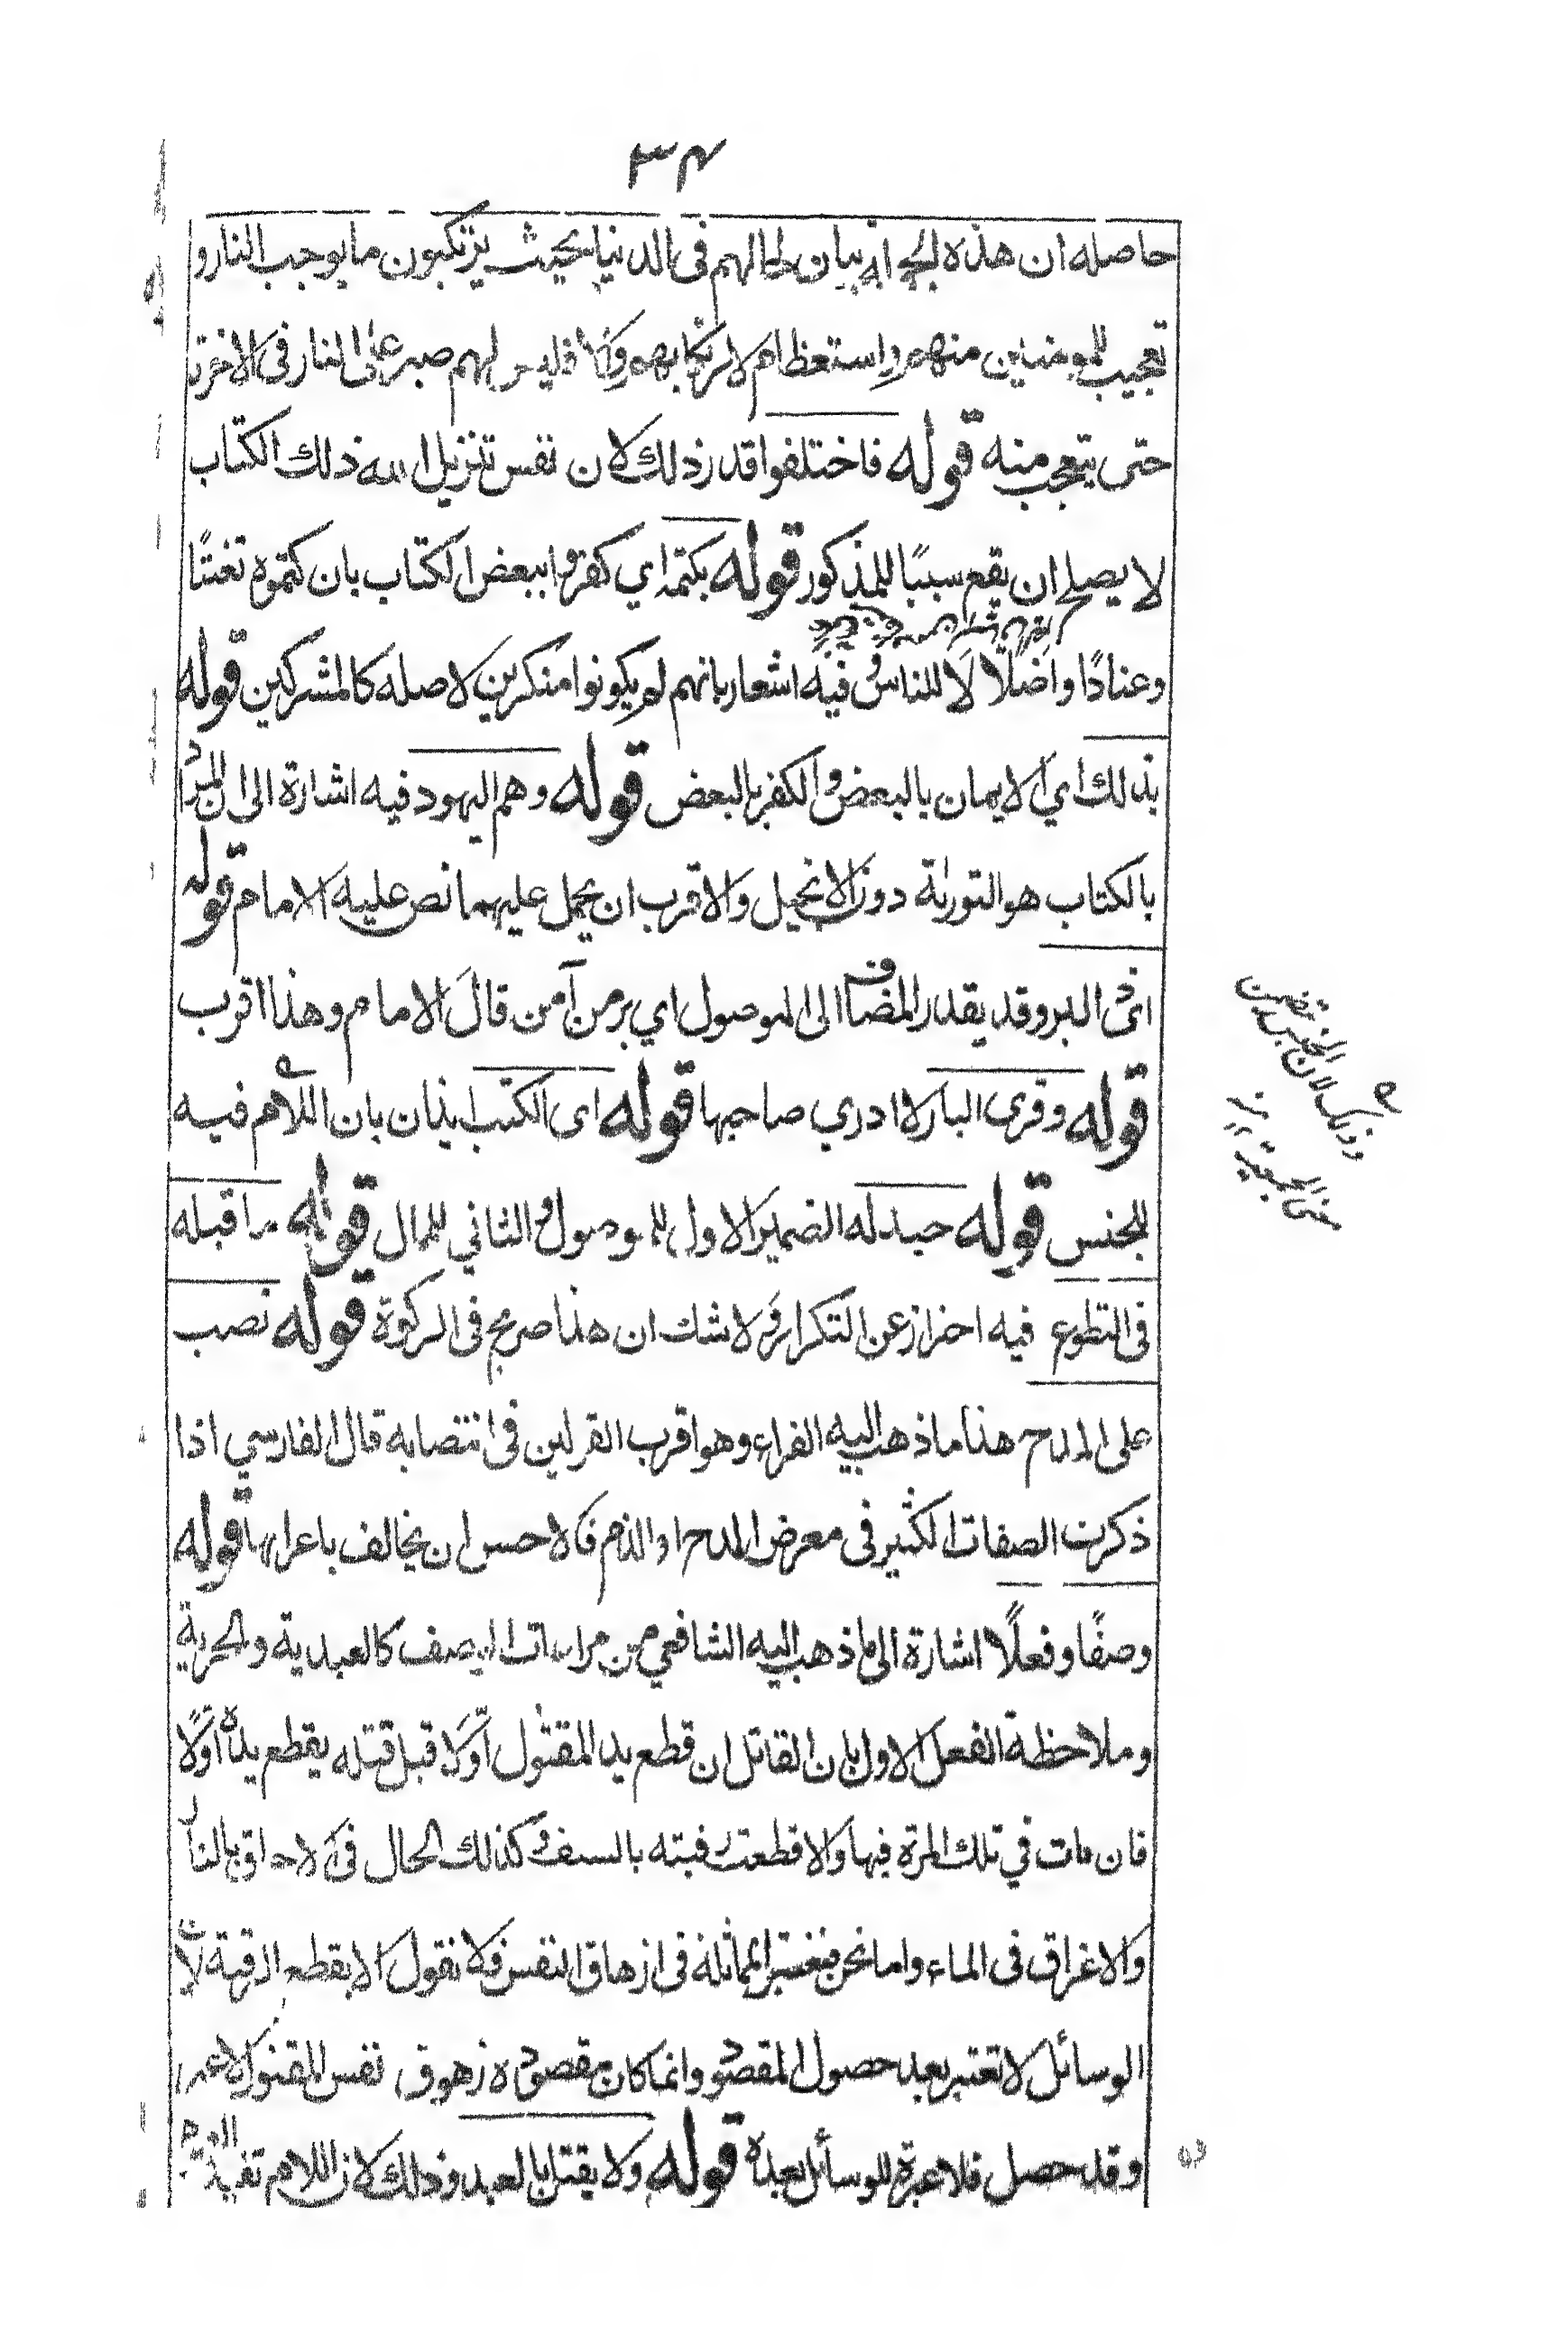 ٣٤
حاصله ان هذه الجملة بيان لحالهم فى الدنيا بحيث يرتكبون ما يوجب النار و
تعجيب للمومنين منهم واستعظام لارتكابهم والا فليس لهم صبر على النار فى الاخرة
حتى يتعجب منه قوله فاختلفوا قدر ذلك لان نفس تنزيل الله ذلك الكتاب
لا يصلح ان يقع سببًا للمذكور قوله بكتمه اي كفروا ببعض الكتاب بان كتموه تعنتًا
وعنادًا واضلالا للناس وفيه اشعار بانهم لم يكونوا منكرين لاصله كالمشركين قوله
بذلك اي الايمان بالبعض والكفر بالبعض قوله وهم اليهود فيه اشارة الى ان المراد
بالكتاب هو التورىة دون الانجيل والاقرب ان يحمل عليهما نص عليه الامام قوله
اى ذى البر وقد يقدر المضاف الى الموصول اي بر من آمن قال الامام وهذا اقرب
قوله وقرى البار لا ادري صاحبها قوله اى الكتب ايذان بان اللام فيه
للجنس قوله حبه له الضمير الاول للموصول والثاني للمال قوله ما قبله
فى التطوع فيه احتراز عن التكرار ولا شك ان هذا صريح فى الزكوة قوله نصب
على المدح هذا ما ذهب اليه الفراء وهو اقرب القولين فى انتصابه قال الفارسي اذا
ذكرت الصفات الكثير فى معرض المدح او الذم فالاحسن ان يخالف باعرابها قوله
وصفًا وفعلًا اشارة الى ما ذهب اليه الشافعي من مراعات الوصف كالعبدية والحرية
وملاحظة الفعل الاول بان القاتل ان قطع يد المقتول أوّلا قبل قتله يقطع يده اوّلًا
فان مات في تلك المرة فيها والا قطعت رقبته بالسيف وكذلك الحال فى الاحراق بالنار
والاغراق فى الماء واما نحن فنعتبر المماثلة فى ازهاق النفس فلا نقول الا بقطع الرقبة لان
الوسائل لا تعتبر بعد حصول المقصود وانما كان مقصوده زهوق نفس المقتول لا غير
وقد حصل فلا عبرة للوسائل بعده قوله ولا يقتل بالعبد وذلك لان اللام تفيد